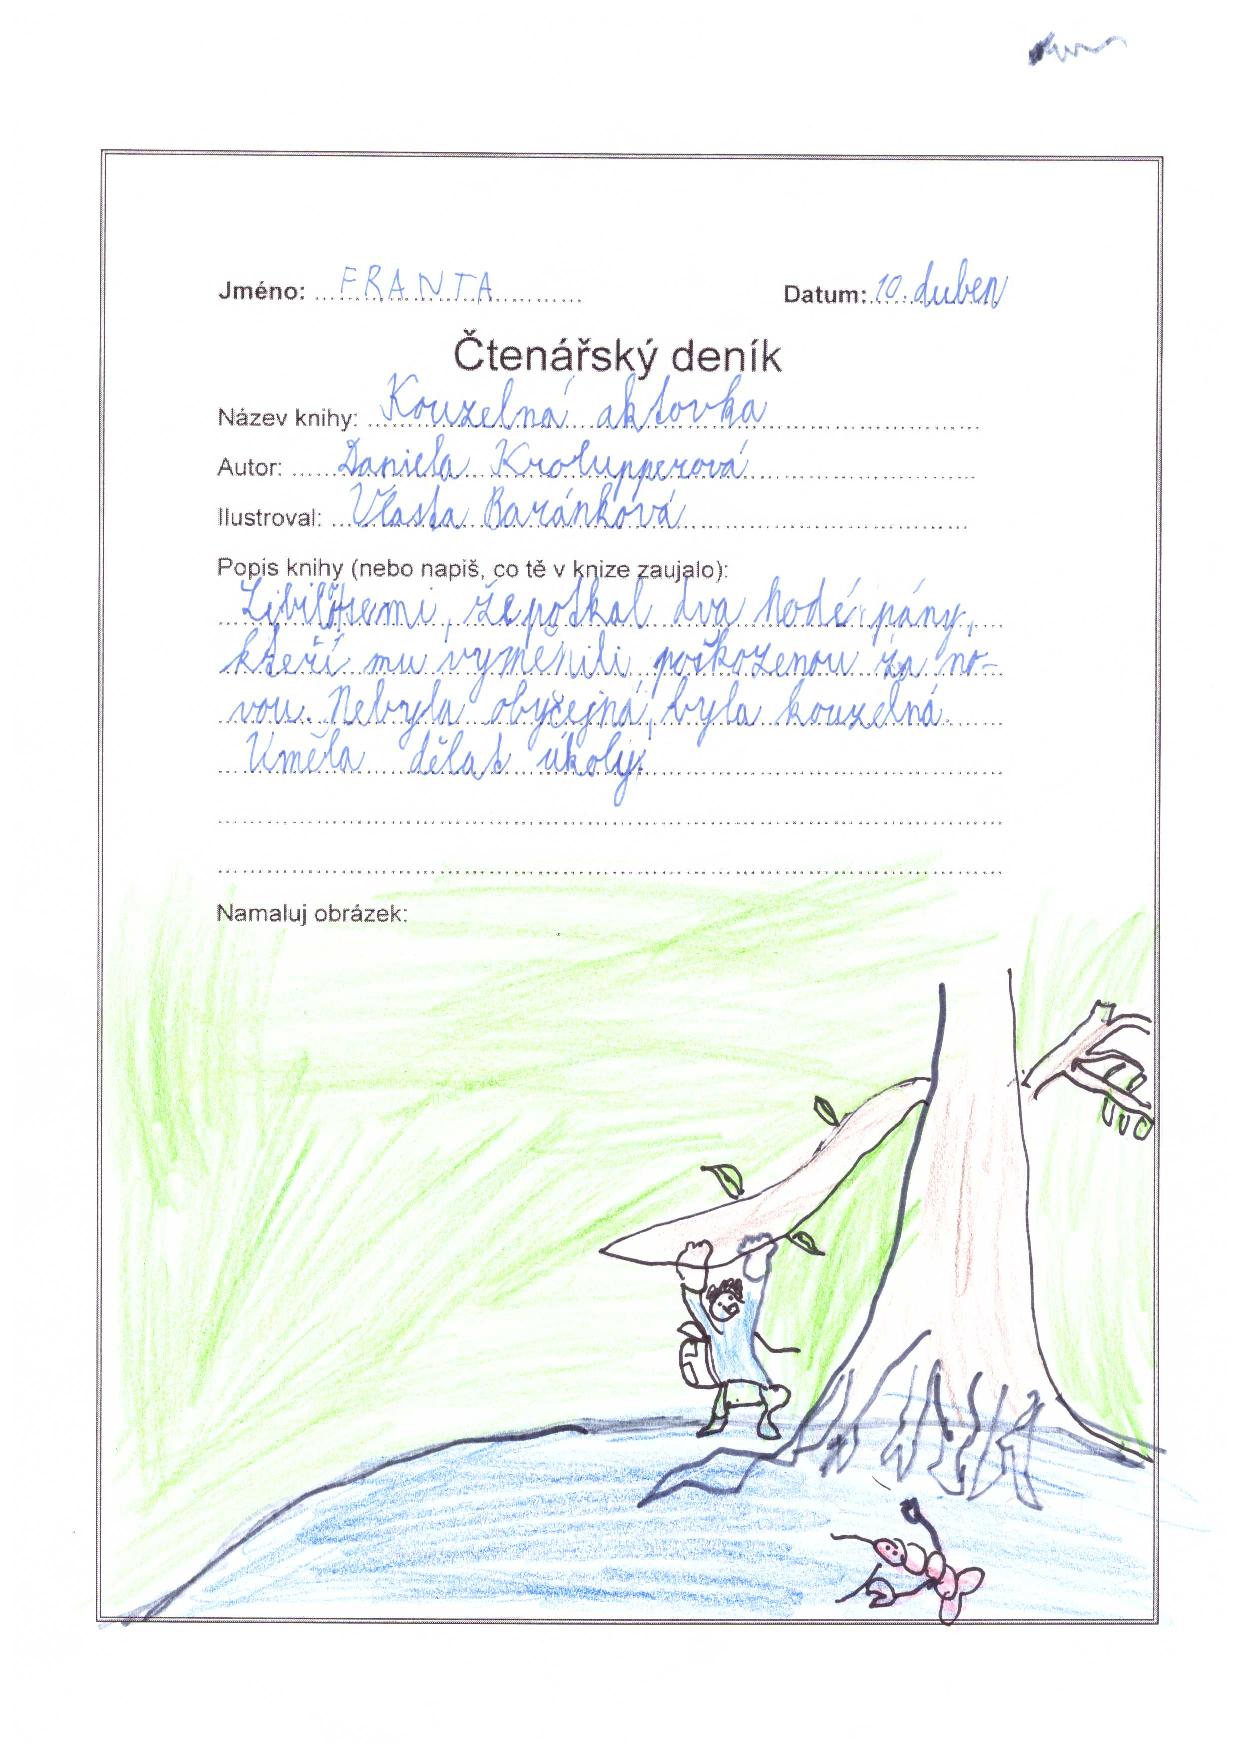 Jméno: FRANTA Datum: 10. duben
Čtenářský deník
Název knihy: Kouzelná aktovka
Autor: Daniela Krolupperová
Ilustroval: Vlasta Baránková
Popis knihy (nebo napiš, co tě v knize zaujalo):
Líbilo se mi, že potkal dva hodé pány,
kteří mu vyměnili poškozenou za no-
vou. Nebyla obyčejná, byla kouzelná.
Uměla dělat úkoly.
Namaluj obrázek: